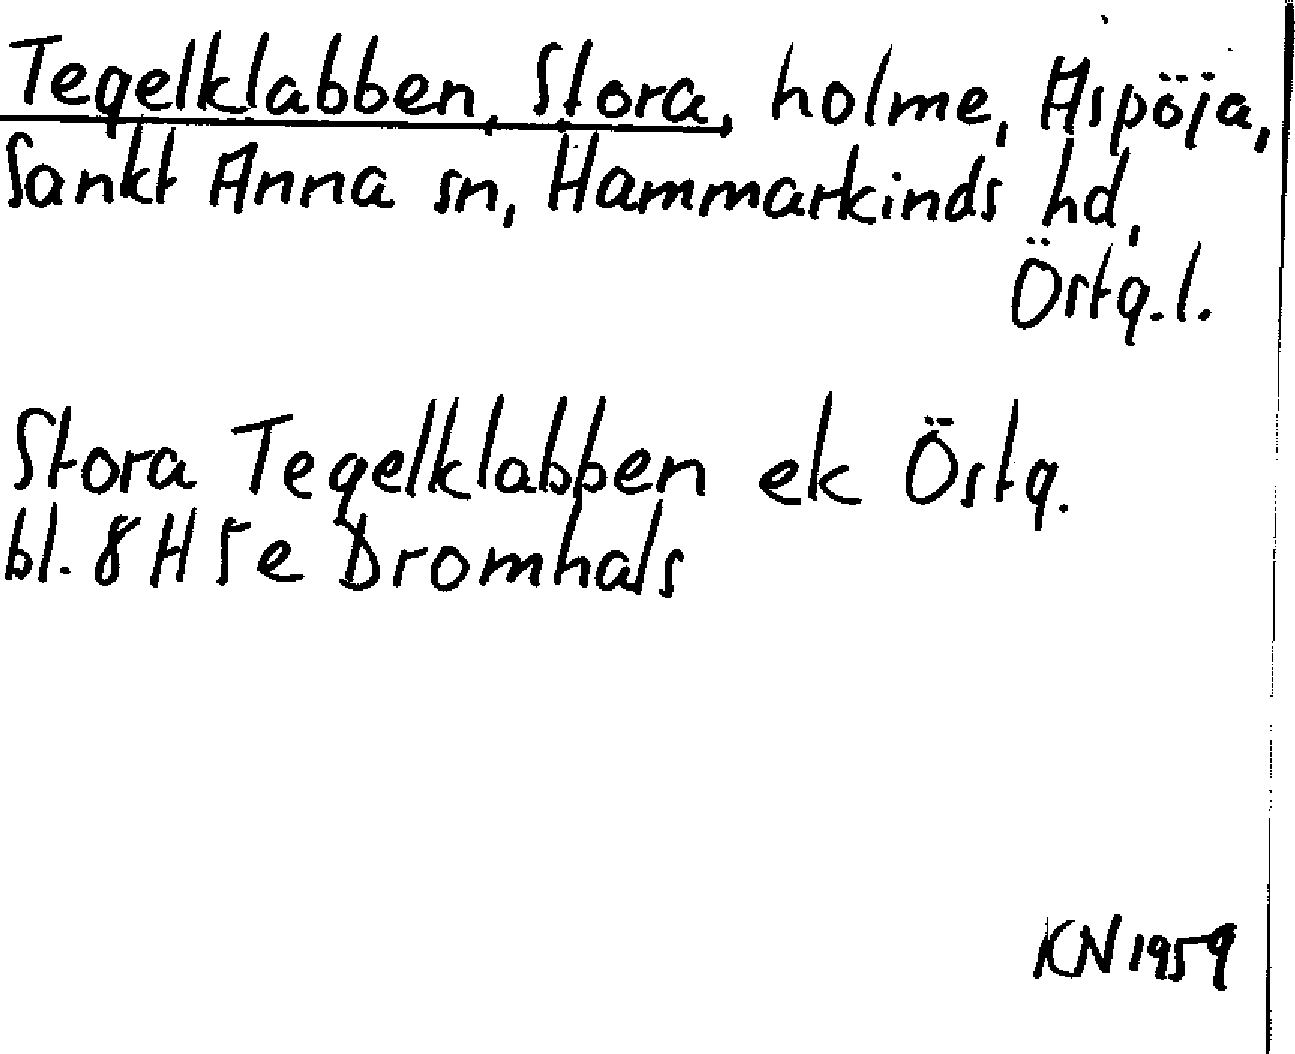 Tegelklabben, Stora, holme, Aspöja,
Sankt Anna sn, Hammarkinds hd,
Östg.l.
Stora Tegelklabben ek Östg.
bl. 8 H 5 e Dromhals
KN 1959